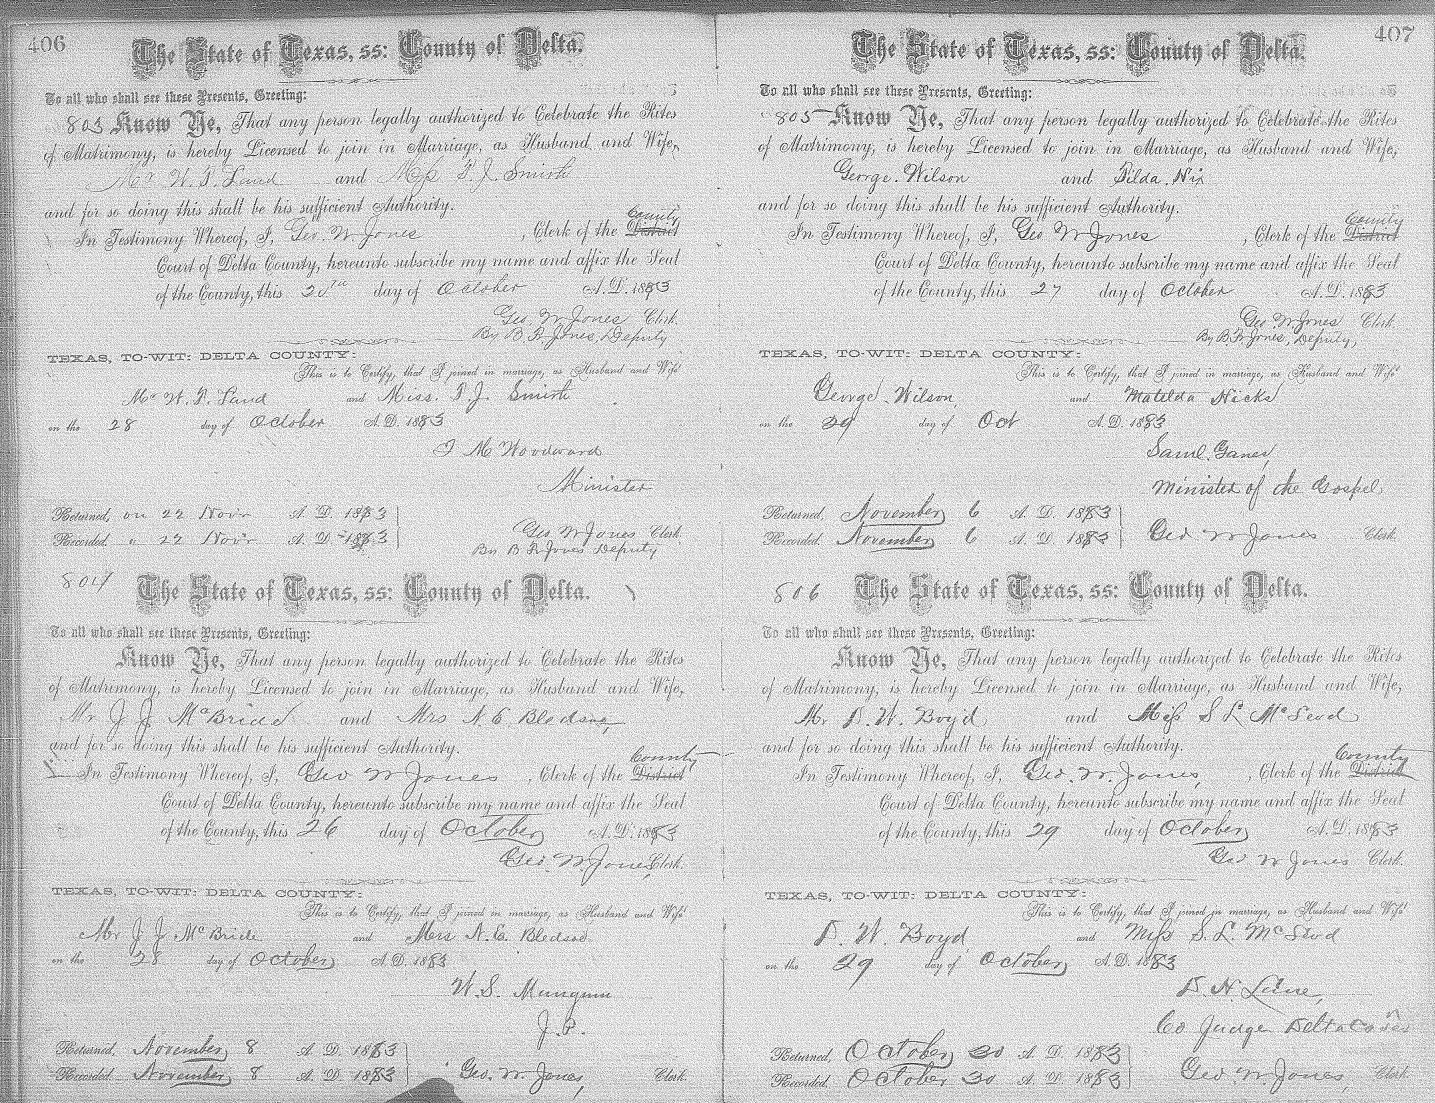 406
The State of Texas, ss: County of Delta.
To all who shall see these Presents, Greeting:
803 Know Ye, That any person legally authorized to Celebrate the Rites
of Matrimony, is hereby Licensed to join in Marriage, as Husband and Wife,
Mr W. P. Land and Miss P. J. Smith
and for so doing this shall be his sufficient Authority.
County
In Testimony Whereof, I, Geo W Jones, Clerk of the District
Court of Delta County, hereunto subscribe my name and affix the Seal
of the County, this 20th day of October A.D. 1883
Geo W Jones Clerk.
By B. F. Jones, Deputy
TEXAS, TO-WIT: DELTA COUNTY:
This is to Certify, that I joined in marriage, as Husband and Wife
Mr W. P. Land and Miss. P. J. Smith
on the 28 day of October A.D. 1883
M Woodward
Minister
Returned, on 22 Nov'r A. D. 1883
Recorded. 22 Nov'r A. D. 1883
Geo W Jones Clerk.
By B F Jones Deputy
804 The State of Texas, ss: County of Delta.
To all who shall see these Presents, Greeting:
Know Ye, That any person legally authorized to Celebrate the Rites
of Matrimony, is hereby Licensed to join in Marriage, as Husband and Wife,
Mr J. J. McBride and Mrs N. E. Bledsoe,
and for so doing this shall be his sufficient Authority.
County
In Testimony Whereof, I, Geo W Jones, Clerk of the District
Court of Delta County, hereunto subscribe my name and affix the Seal
of the County, this 26 day of October A.D. 1883
Geo. W. Jones, Clerk.
TEXAS, TO-WIT: DELTA COUNTY:
This is to Certify, that I joined in marriage, as Husband and Wife
Mr J. J. McBride and Mrs N. E. Bledsoe
on the 28 day of October A.D. 1883
W. S. Mungum
J. P.
Returned, November 8 A. D. 1883
Recorded. November 8 A. D. 1883
Geo. W Jones, Clerk.
407
The State of Texas, ss: County of Delta.
To all who shall see these Presents, Greeting:
805 Know Ye, That any person legally authorized to Celebrate the Rites
of Matrimony, is hereby Licensed to join in Marriage, as Husband and Wife,
George. Wilson and Tilda. Nix
and for so doing this shall be his sufficient Authority.
County
In Testimony Whereof, I, Geo W Jones, Clerk of the District
Court of Delta County, hereunto subscribe my name and affix the Seal
of the County, this 27 day of October A.D. 1883
Geo. W Jones Clerk.
By B F Jones, Deputy,
TEXAS, TO-WIT: DELTA COUNTY:
This is to Certify, that I joined in marriage, as Husband and Wife
George. Wilson, and Matelda Nicks
on the 29 day of Oct A.D. 1883
Saml. Ganes,
Minister of the Gospel,
Returned, November 6 A. D. 1883
Recorded. November 6 A. D. 1883
Geo W Jones Clerk.
806 The State of Texas, ss: County of Delta.
To all who shall see these Presents, Greeting:
Know Ye, That any person legally authorized to Celebrate the Rites
of Matrimony, is hereby Licensed to join in Marriage, as Husband and Wife,
Mr D. W. Boyd and Miss S L McLeod
and for so doing this shall be his sufficient Authority.
County
In Testimony Whereof, I, Geo. W. Jones, Clerk of the District
Court of Delta County, hereunto subscribe my name and affix the Seal
of the County, this 29 day of October A.D. 1883
Geo W Jones Clerk.
TEXAS, TO-WIT: DELTA COUNTY:
This is to Certify, that I joined in marriage, as Husband and Wife
D. W. Boyd and Miss S. L. McLeod
on the 29 day of October A.D. 1883
D. H Lane,
Co Judge Delta Co
Returned, October 30 A. D. 1883
Recorded. October 30 A. D. 1883
Geo W Jones, Clerk.